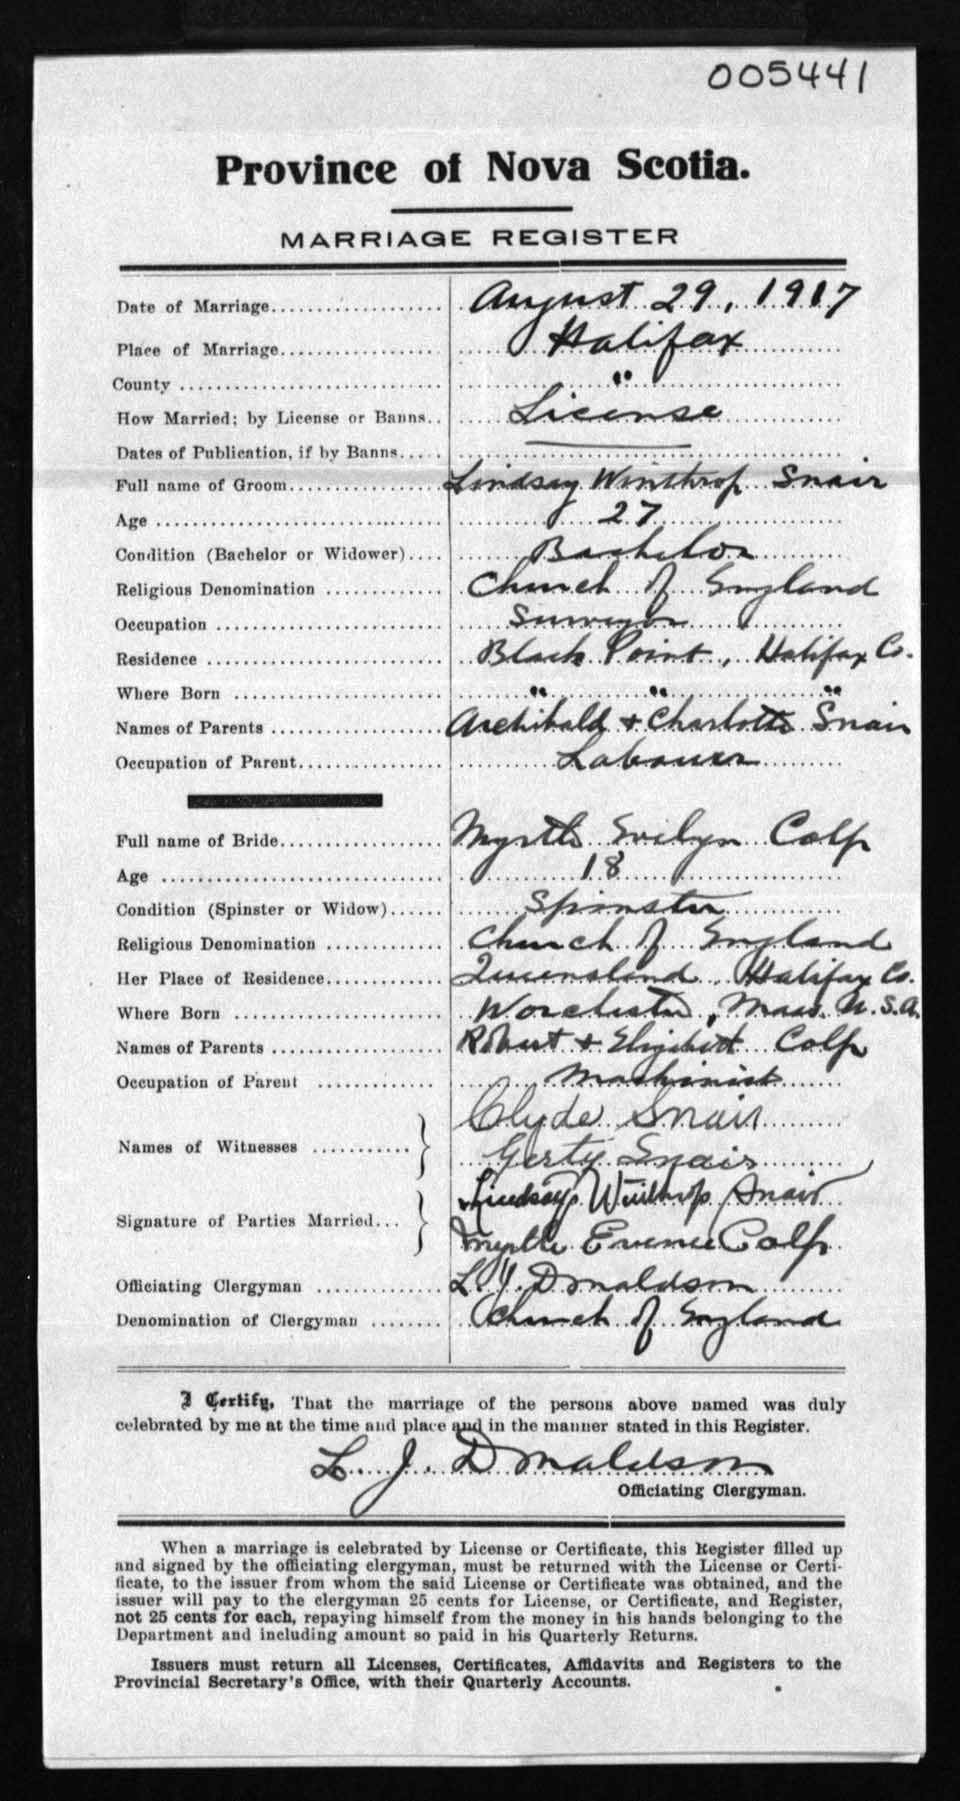 005441
Province of Nova Scotia.
MARRIAGE REGISTER
Date of Marriage August 29, 1917
Place of Marriage Halifax
County "
How Married; by License or Banns License
Dates of Publication, if by Banns
Full name of Groom Lindsay Winthrop Snair
Age 27
Condition (Bachelor or Widower) Bachelor
Religious Denomination Church of England
Occupation Surveyor
Residence Black Point, Halifax Co.
Where Born " " "
Names of Parents Archibald + Charlotte Snair
Occupation of Parent Labourer
Full name of Bride Myrtle Evilyn Colp
Age 18
Condition (Spinster or Widow) Spinster
Religious Denomination Church of England
Her Place of Residence Queensland, Halifax Co.
Where Born Worchester, Mass. U.S.A.
Names of Parents Robert + Elizabeth Colp
Occupation of Parent Machinist
Names of Witnesses Clyde Snair
Gerty Snair
Signature of Parties Married Lindsay Winthrop Snair
Myrtle Colp
Officiating Clergyman L. J. Donaldson
Denomination of Clergyman Church of England
I Certify, That the marriage of the persons above named was duly
celebrated by me at the time and place and in the manner stated in this Register.
L. J. Donaldson
Officiating Clergyman.
When a marriage is celebrated by License or Certificate, this Register filled up
and signed by the officiating clergyman, must be returned with the License or Certi-
ficate, to the issuer from whom the said License or Certificate was obtained, and the
issuer will pay to the clergyman 25 cents for License, or Certificate, and Register,
not 25 cents for each, repaying himself from the money in his hands belonging to the
Department and including amount so paid in his Quarterly Returns.
Issuers must return all Licenses, Certificates, Affidavits and Registers to the
Provincial Secretary's Office, with their Quarterly Accounts.